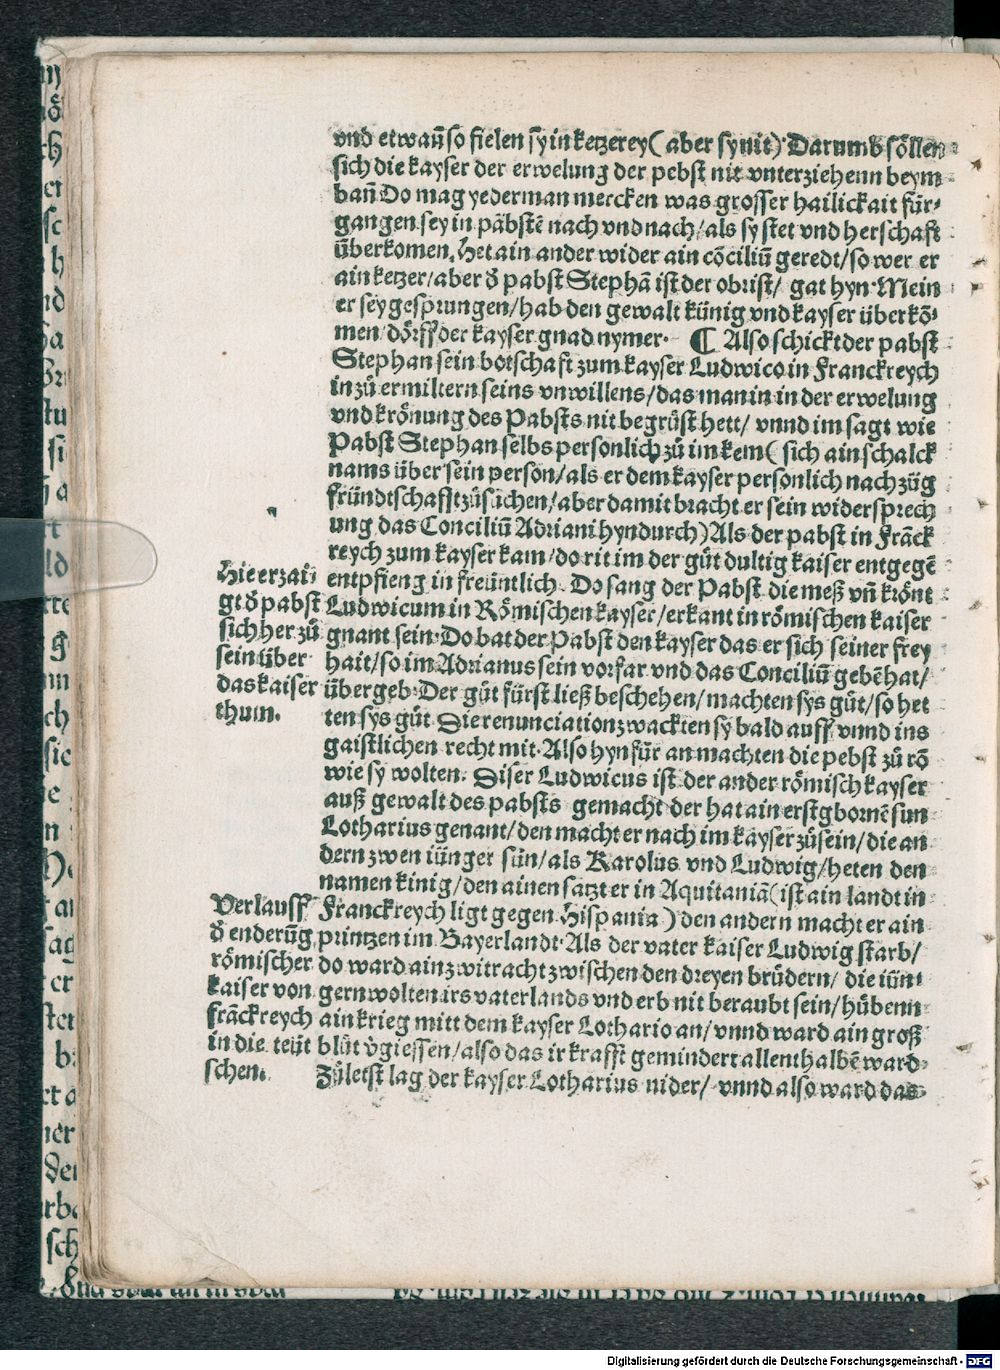 vnd etwañ so fielen sy in ketzerey ( aber sy nit) Darumb söllen
sich die kayser der erwelung der pebst nit vnterziehenn beym
bañ Do mag yederman mercken was grosser hailickait für⸗
gangen sey in päbstē nach vnd nach/als sy stet vnd herschaft
überkomen. Het ain ander wider ain cōciliū geredt/so wer er
ain ketzer/aber ď pabst Stephā ist der obrist/ gat hyn Mein
er sey gesprungen/hab den gewalt künig vnd kayser überkō⸗
men/dörff der kayser gnad nymer. ¶ Also schickt der pabst
Stephan sein botschaft zum kayser Ludwico in Franckreych
in zů ermiltern seins vnwillens/das man in in der erwelung
vnd krönung des Pabsts nit begrüst hett/ vnnd im sagt wie
Pabst Stephan selbs personlich zů im kem ( sich ain schalck
nams über sein person/als er dem kayser personlich nachzüg
fründtschafft zůsůchen/aber damit bracht er sein widersprech
ung das Conciliū Adriani hyndurch) Als der pabst in Frāck
reych zum kayser kam/do rit im der gůt dultig kaiser entgegē
entpfieng in freüntlich. Do sang der Pabst die meß vñ krönt
Ludwicum in Römischen kayser/erkant in römischen kaiser
gnant sein. Do bat der Pabst den kayser das er sich seiner frey
hait/so im Adrianus sein vorfar vnd das Conciliū gebē hat/
übergeb. Der gůt fürst ließ beschehen/machten sys gůt/so het
ten sys gůt. Die renunciation zwackten sy bald auff vnnd ins
gaistlichen recht mit. Also hynfür an machten die pebst zů rō
wie sy wolten. Diser Ludwicus ist der ander römisch kayser
auß gewalt des pabsts gemacht der hat ain erstgbornē sun
Lotharius genant/den macht er nach im kayser zůsein/die an
dern zwen iünger sün/als Karolus vnd Ludwig/heten den
namen kinig/den ainen satzt er in Aquitaniā (ist ain landt in
Franckreych ligt gegen Hispania ) den andern macht er ain
printzen im Bayerlandt. Als der vater kaiser Ludwig starb/
do ward ain zwitracht zwischen den dreyen brüdern/ die iün⸗
gern wolten irs vaterlands vnd erb nit beraubt sein/hůbenn
ain krieg mitt dem kayser Lothario an/vnnd ward ain groß
blůt v̓giessen/also das ir krafft gemindert allenthalbē ward
Zůletst lag der kayser Lotharius nider/ vnnd also ward das
Hie erzai⸗
gt ď pabst
sich her zů
sein über
das kaiser
thum.
Verlauff
ď enderūg
römischer
kaiser von
frāckreych
in die teüt
schen.
Digitalisierung gefördert durch die Deutsche Forschungsgemeinschaft - DFG